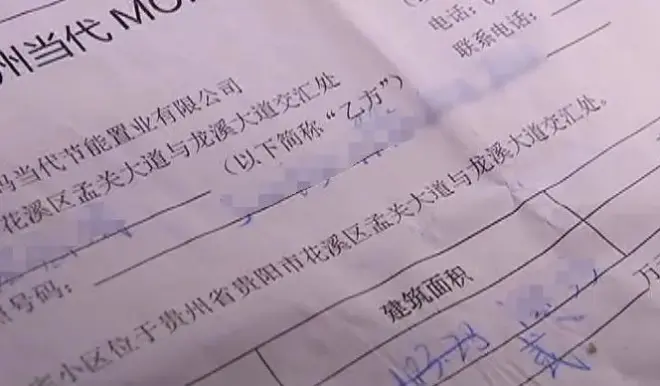 州当代 MO
电话:
联系电话:
码当代节能置业有限公司
花溪区孟关大道与龙溪大道交汇处
(以下简称“乙方”)
号码:
小区位于贵州省贵阳市花溪区孟关大道与龙溪大道交汇处。
建筑面积
万